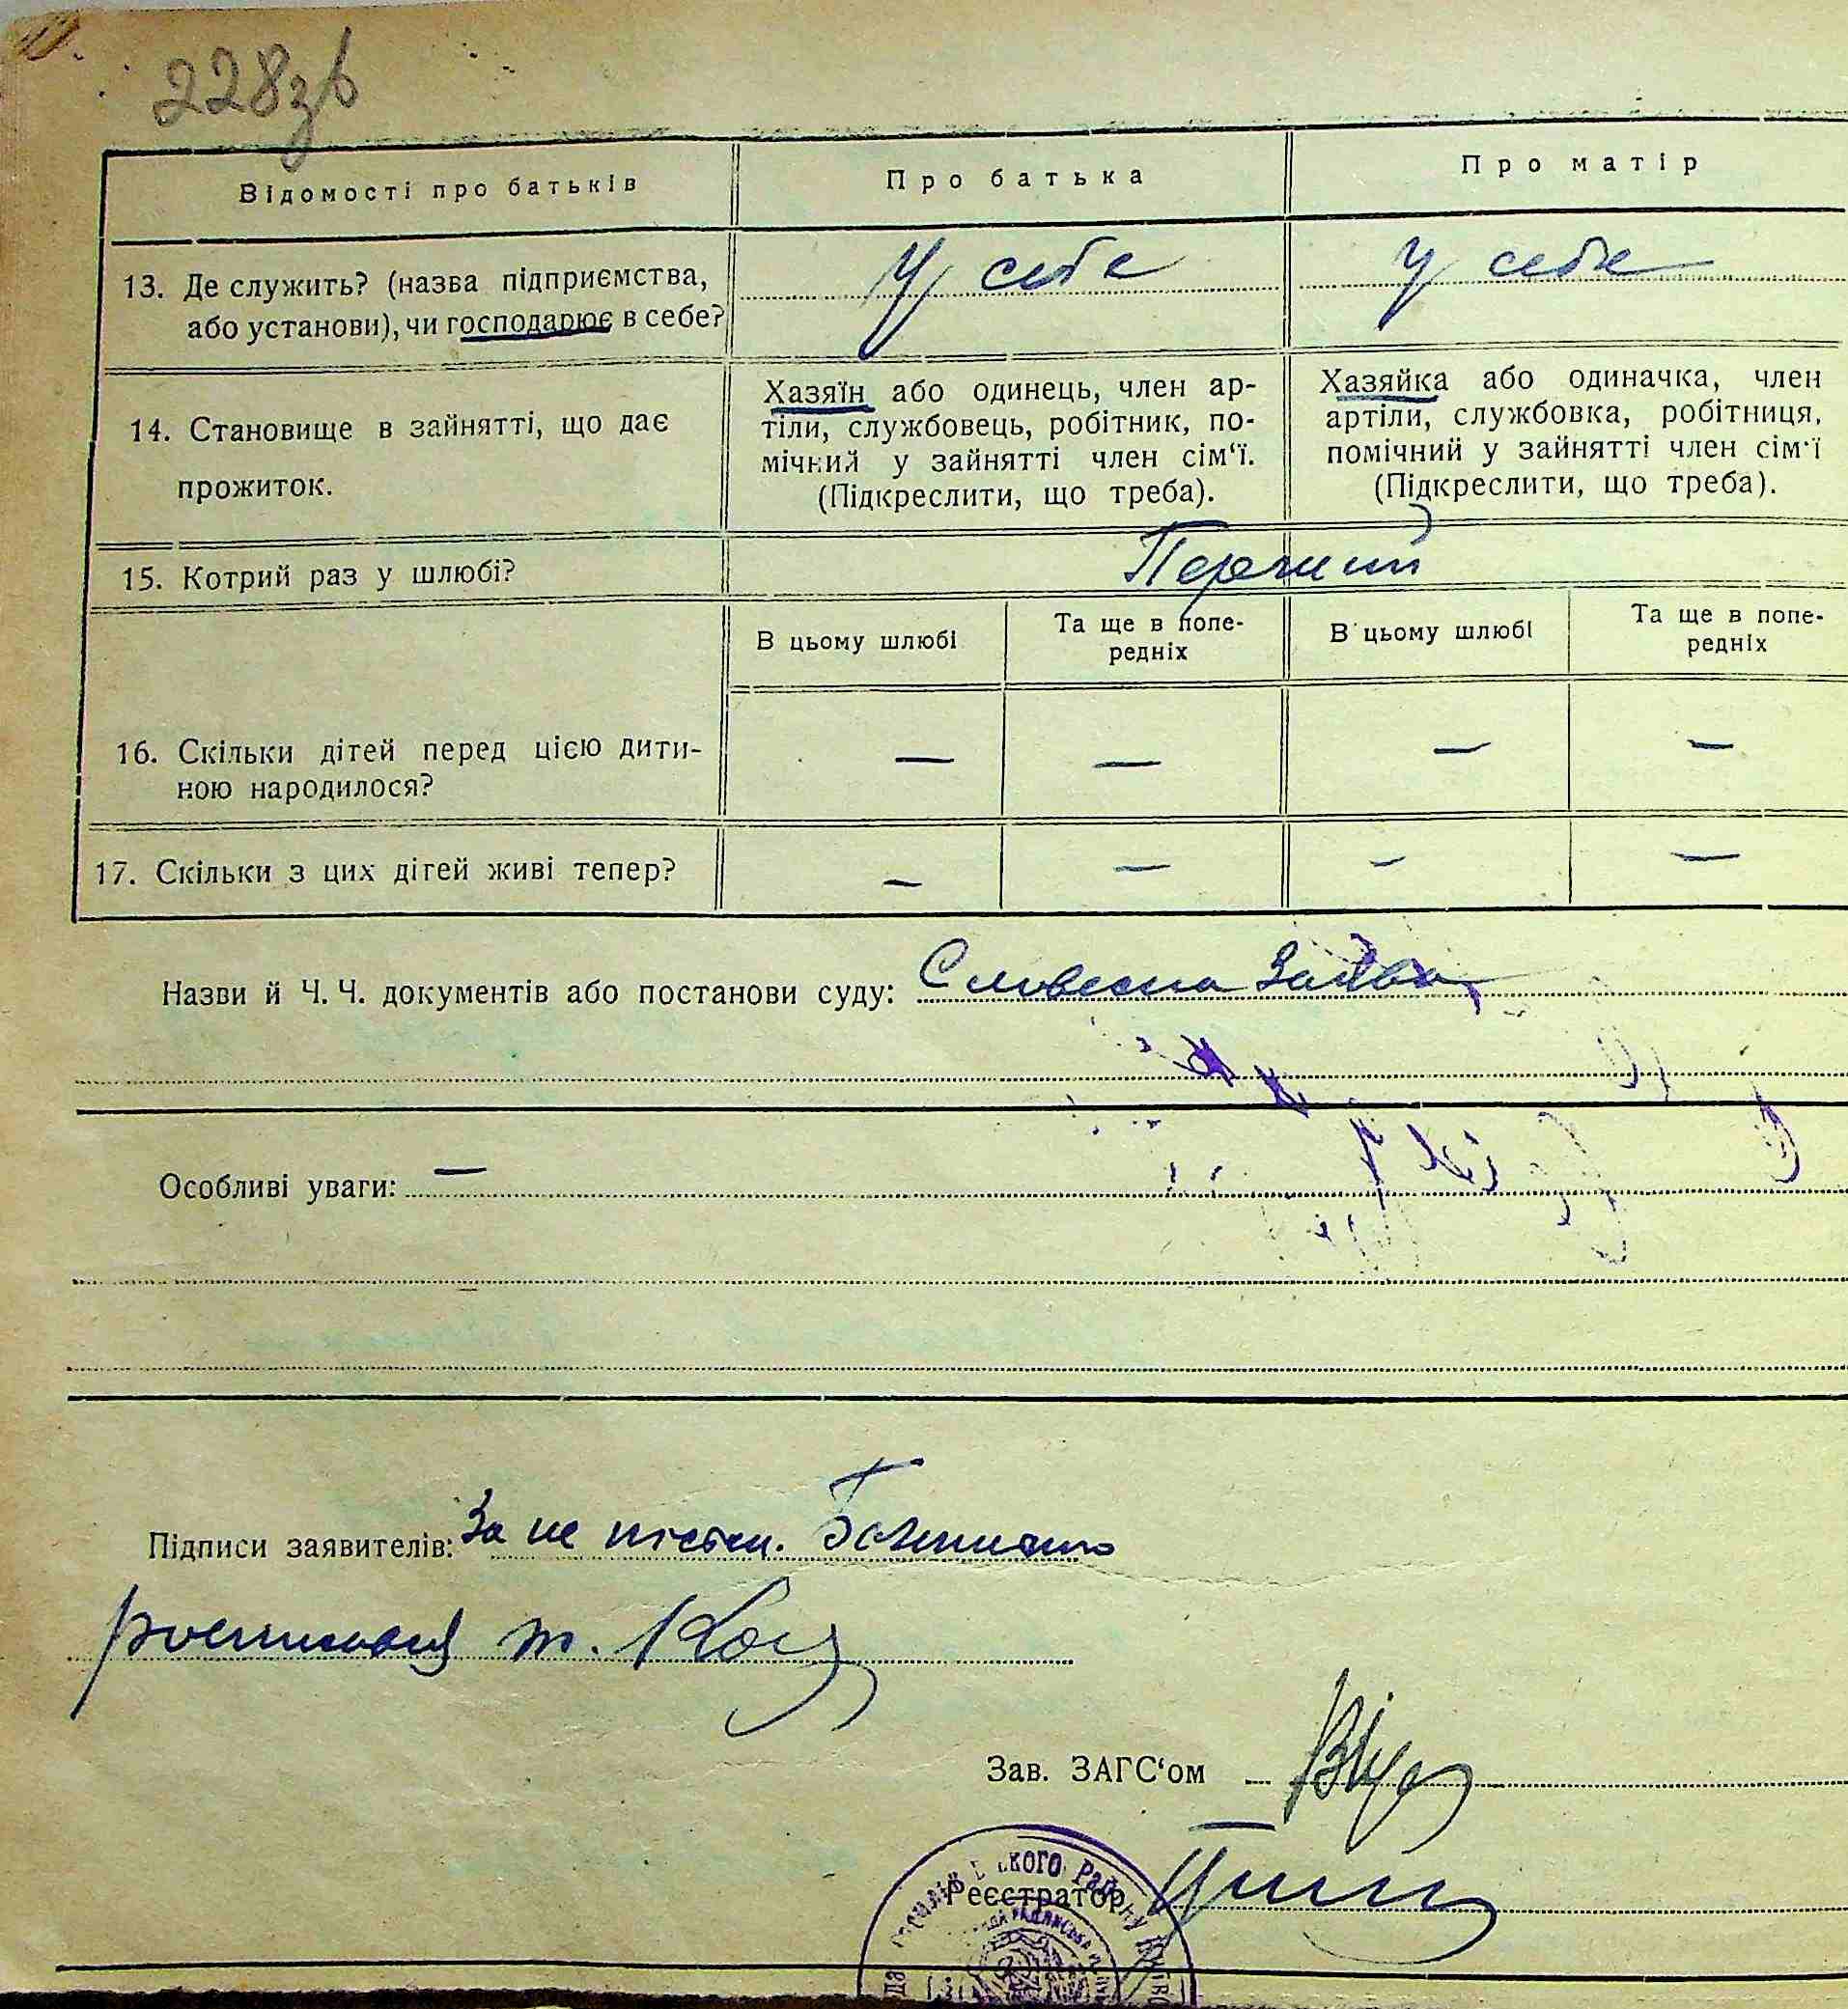 228зв
Відомості про батьків
Про батька
Про матір
13. Де служить? (назва підприємства,
або установи), чи господарює в себе?
У себе
У себе
14. Становище в зайнятті, що дає
прожиток.
Хазяїн або одинець, член ар-
тіли, службовець, робітник, по-
мічний у зайнятті член сім'ї.
(Підкреслити, що треба).
Хазяйка або одиначка, член
артіли, службовка, робітниця,
помічний у зайнятті член сім'ї
(Підкреслити, що треба).
15. Котрий раз у шлюбі?
Перший
В цьому шлюбі
Та ще в попе-
редніх
В цьому шлюбі
Та ще в попе-
редніх
16. Скільки дітей перед цією дити-
ною народилося?
— — — —
17. Скільки з цих дітей живі тепер?
— — — —
Назви й Ч. Ч. документів або постанови суду: Словесна Заява
Особливі уваги: —
Підписи заявителів: За не писем.
т.
Зав. ЗАГС'ом
Реєстратор